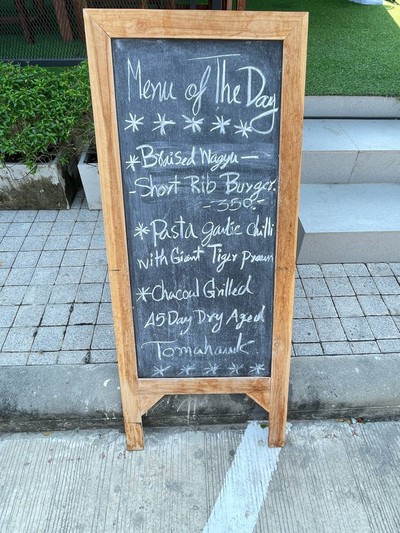 Menu of The Day
* * * * *
* Braised Wagyu —
- Short Rib Burger.
- 350.-
* Pasta garlic chilli
with Giant Tiger Prawn
* Chacoal Grilled
45 Day Dry Aged
Tomahawk
* * * * *